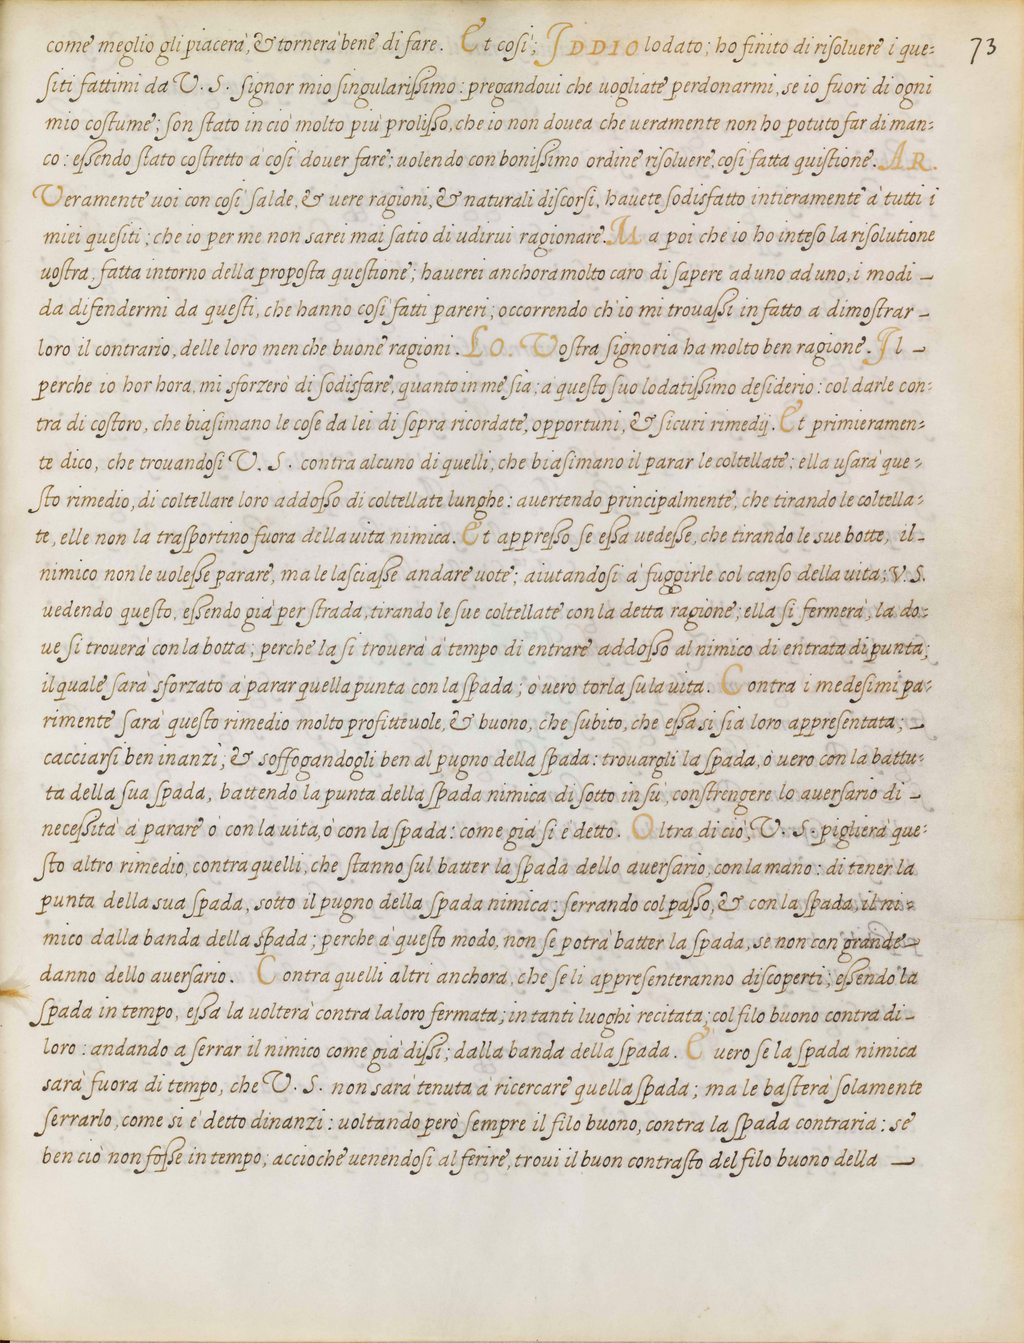 come meglio gli piacerà, & tornerà bene di fare. Et cosi; IDDIO lodato; ho finito di risoluere i que:
73
siti fattimi da V. S. signor mio singularissimo: pregandoui che uogliate perdonarmi, se io fuori di ogni
mio costume; son stato in ciò molto più prolisso, che io non douea che ueramente non ho potuto far di man:
co: essendo stato costretto à cosi douer fare; uolendo con bonissimo ordine risoluere, cosi fatta quistione. AR.
Veramente uoi con cosi salde, & uere ragioni, & naturali discorsi, hauete sodisfatto intieramente à tutti i
miei quesiti; che io per me non sarei mai satio di udirui ragionare. Ma poi che io ho inteso la risolutione
uostra, fatta intorno della proposta questione; hauerei anchora molto caro di sapere ad uno ad uno, i modi
da difendermi da questi, che hanno cosi fatti pareri; occorrendo ch'io mi trouassi in fatto a dimostrar
loro il contrario, delle loro men che buone ragioni. LO. Vostra signoria ha molto ben ragione. Il
perche io hor hora, mi sforzerò di sodisfare, quanto in me sia; a questo suo lodatissimo desiderio: col darle con:
tra di costoro, che biasimano le cose da lei di sopra ricordate, opportuni, & sicuri rimedij. Et primieramen:
te dico, che trouandosi V. S. contra alcuno di quelli, che biasimano il parar le coltellate: ella usarà que:
sto rimedio, di coltellare loro addosso di coltellate lunghe: auertendo principalmente, che tirando le coltella:
te, elle non la trasportino fuora della uita nimica. Et appresso se essa uedesse, che tirando le sue botte, il
nimico non le uolesse parare, ma le lasciasse andare uote; aiutandosi à fuggirle col canso della uita; V. S.
uedendo questo, essendo già per strada, tirando le sue coltellate con la detta ragione; ella si fermerà, la do:
ue si trouerà con la botta; perche la si trouerà à tempo di entrare addosso al nimico di entrata di punta;
il quale sarà sforzato à parar quella punta con la spada; ò uero torla su la uita. Contra i medesimi pa:
rimente sarà questo rimedio molto profitteuole, & buono, che subito, che essa si sia loro appresentata;
cacciarsi ben inanzi; & soffogandogli ben al pugno della spada: trouargli la spada, ò uero con la battu:
ta della sua spada, battendo la punta della spada nimica di sotto in sù, constrengere lo auersario di
necessità à parare ò con la uita, ò con la spada: come già si è detto. Oltra di ciò, V. S. piglierà que:
sto altro rimedio, contra quelli, che stanno sul batter la spada dello auersario, con la mano: di tener la
punta della sua spada, sotto il pugno della spada nimica: serrando col passo, & con la spada, il ni:
mico dalla banda della spada; perche à questo modo, non se potrà batter la spada, se non con grande
danno dello auersario. Contra quelli altri anchora, che se li appresenteranno discoperti; essendo la
spada in tempo, essa la uolterà contra la loro fermata; in tanti luoghi recitata; col filo buono contra di
loro: andando a serrar il nimico come già dissi; dalla banda della spada. E uero se la spada nimica
sarà fuora di tempo, che V. S. non sarà tenuta à ricercare quella spada; ma le basterà solamente
serrarlo, come si è detto dinanzi: uoltando però sempre il filo buono, contra la spada contraria: se
ben ciò non fosse in tempo; accioche uenendosi al ferire, troui il buon contrasto del filo buono della